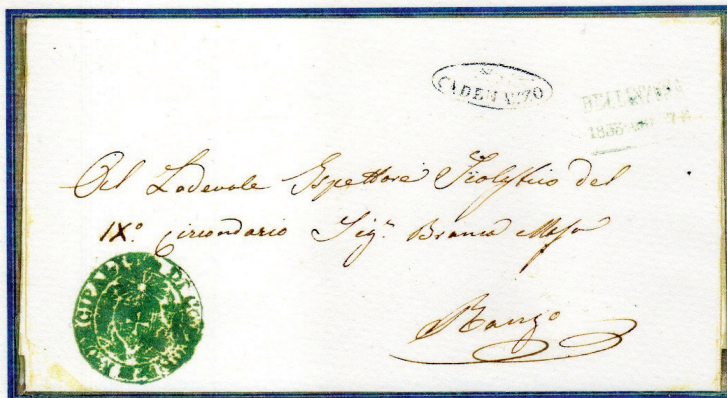 CADEMAZZO
BELLINZONA
1853
Al Lodevole Ispettore Scolastico del
IX.º Circondario Sig.r Branca Masa
MUNICIPALITÀ DI